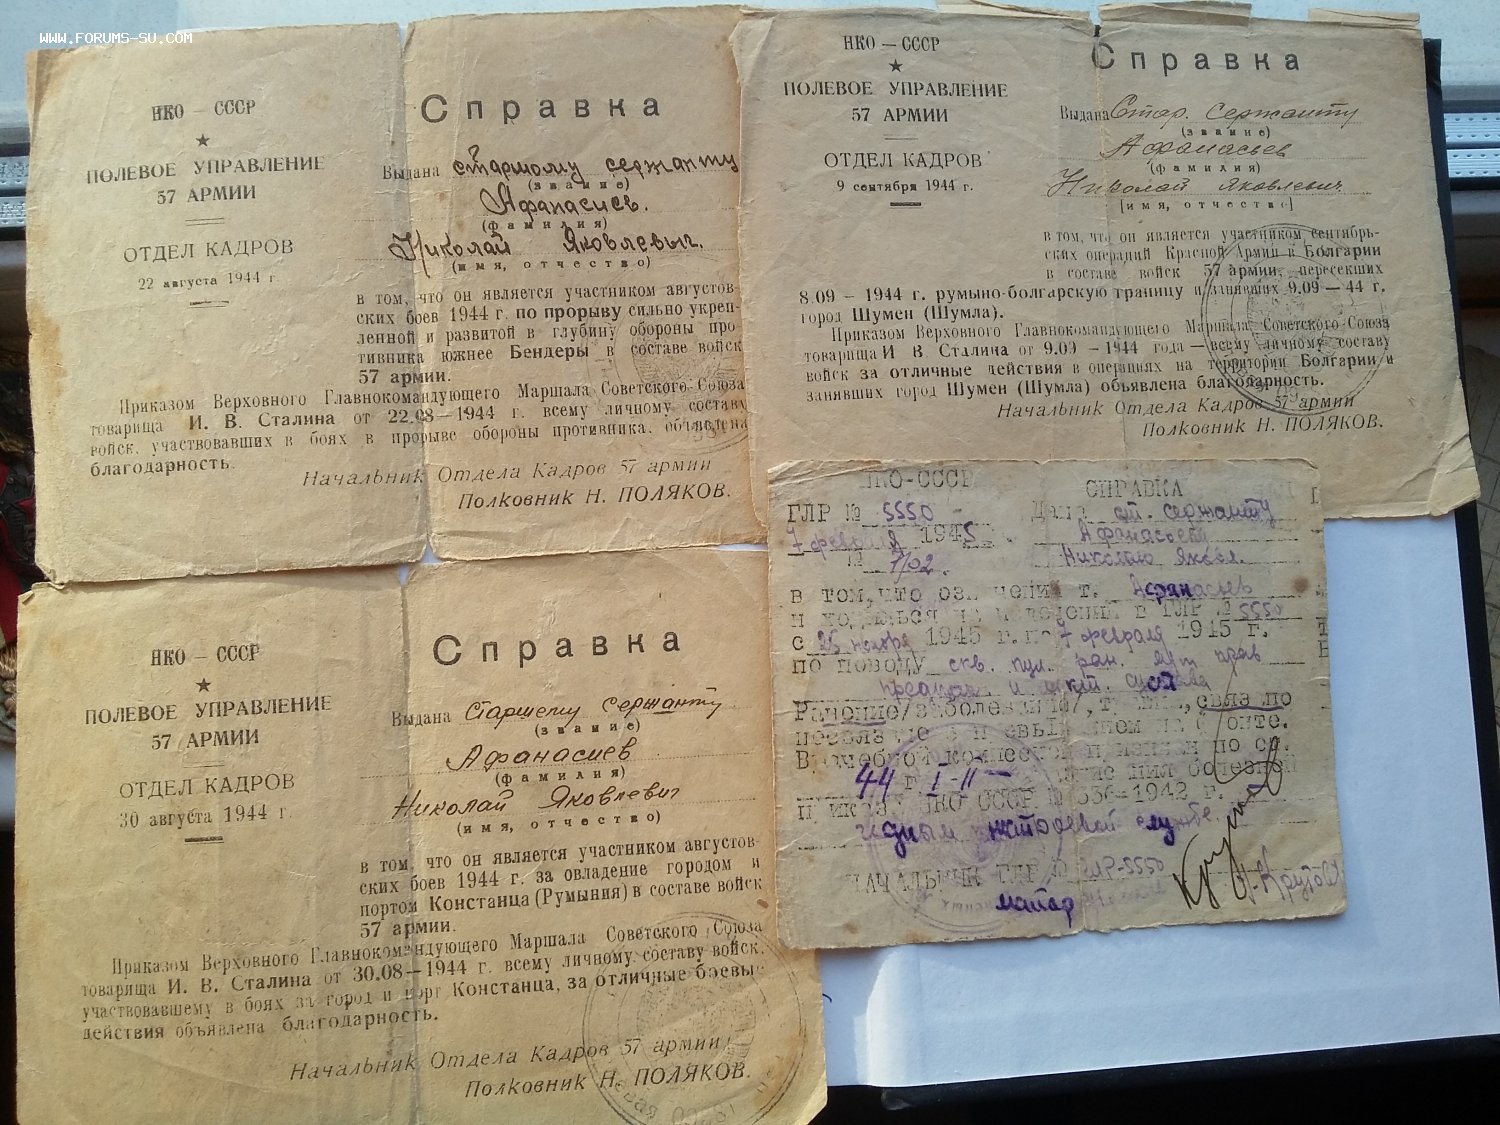 WWW.FORUMS-SU.COM
НКО – СССР
★
ПОЛЕВОЕ УПРАВЛЕНИЕ
57 АРМИИ
ОТДЕЛ КАДРОВ
22 августа 1944 г.
Справка
Выдана старшому сержанту
(звание)
Афанасиев.
(фамилия)
Николай Яковлевыч.
(имя, отчество)
в том, что он является участником августов-
ских боев 1944 г. по прорыву сильно укреп-
ленной и развитой в глубину обороны про-
тивника южнее Бендеры в составе войск
57 армии.
Приказом Верховного Главнокомандующего Маршала Советского Союза
товарища И. В. Сталина от 22.08—1944 г. всему личному составу
войск, участвовавших в боях в прорыве обороны противника, объявлена
благодарность.
Начальник Отдела Кадров 57 армии
Полковник Н. ПОЛЯКОВ.
НКО – СССР
★
ПОЛЕВОЕ УПРАВЛЕНИЕ
57 АРМИИ
ОТДЕЛ КАДРОВ
9 сентября 1944 г.
Справка
Выдана Стар. сержанту
(звание)
Афанасьев
(фамилия)
Николай Яковлевич
[имя, отчество]
в том, что он является участником сентябрь-
ских операций Красной Армии в Болгарии
в составе войск 57 армии, пересекших
8.09 – 1944 г. румыно-болгарскую границу и занявших 9.09 – 44 г.
город Шумен (Шумла).
Приказом Верховного Главнокомандующего Маршала Советского Союза
товарища И. В. Сталина от 9.09 – 1944 года — всему личному составу
войск за отличные действия в операциях на территории Болгарии и
занявших город Шумен (Шумла) объявлена благодарность.
Начальник Отдела Кадров 57 армии
Полковник Н. ПОЛЯКОВ.
НКО – СССР
★
ПОЛЕВОЕ УПРАВЛЕНИЕ
57 АРМИИ
ОТДЕЛ КАДРОВ
30 августа 1944 г.
Справка
Выдана Старшему Сержанту
(звание)
Афанасиев
(фамилия)
Николай Яковлевич
(имя, отчество)
в том, что он является участником августов-
ских боев 1944 г. за овладение городом и
портом Констанца (Румыния) в составе войск
57 армии.
Приказом Верховного Главнокомандующего Маршала Советского Союза
товарища И. В. Сталина от 30.08—1944 г. всему личному составу войск,
участвовавшему в боях за город и порт Констанца, за отличные боевые
действия объявлена благодарность.
Начальник Отдела Кадров 57 армии
Полковник Н. ПОЛЯКОВ.
НКО-СССР
ГЛР № 5550
7 февраля 1945
№ 1/02.
СПРАВКА
Дана ст. сержанту
Афанасьеву
Николаю Яковл.
в том, что т. Афанасьев
в ГЛР № 5550
с 25 ноября 1945 г. по 7 февраля 1945 г.
по поводу скв. пул. ран. прав
и сустава
Ранение/ связ по
фронте.
Врачебной по ст.
44 г. I-II болезней
НКО СССР № 336-1942 г.
годным к нестроевой службе
НАЧАЛЬНИК ГЛР № ГЛР-5550
майор